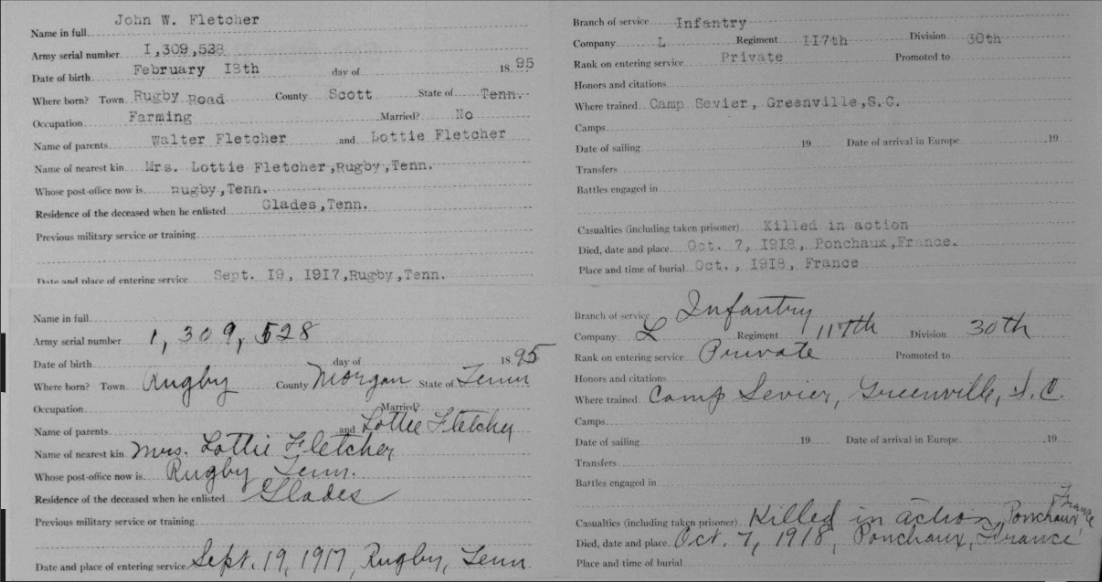 John W. Fletcher
Name in full
Army serial number 1,309,528
Date of birth February 18th day of 1895
Where born? Town Rugby Road County Scott State of Tenn.
Occupation Farming Married? No
Name of parents Walter Fletcher and Lottie Fletcher
Name of nearest kin Mrs. Lottie Fletcher,Rugby,Tenn.
Whose post-office now is Rugby,Tenn.
Residence of the deceased when he enlisted Glades,Tenn.
Previous military service or training
Date and place of entering service Sept. 19, 1917,Rugby,Tenn.
Branch of service Infantry
Company L Regiment 117th Division 30th
Rank on entering service Private Promoted to
Honors and citations
Where trained Camp Sevier, Greenville,S.C.
Camps
Date of sailing 19 Date of arrival in Europe .19
Transfers
Battles engaged in
Casualties (including taken prisoner) Killed in action
Died, date and place Oct. 7, 1918, Ponchaux,France.
Place and time of burial Oct., 1918, France
Name in full
Army serial number 1,309,528
Date of birth day of 1895
Where born? Town Rugby County Morgan State of Tenn
Occupation Married?
Name of parents and Lottie Fletcher
Name of nearest kin Mrs. Lottie Fletcher
Whose post-office now is Rugby Tenn.
Residence of the deceased when he enlisted Glades
Previous military service or training
Date and place of entering service Sept. 19, 1917, Rugby, Tenn.
Branch of service Infantry
Company L Regiment 117th Division 30th
Rank on entering service Private Promoted to
Honors and citations
Where trained Camp Sevier, Greenville, S.C.
Camps
Date of sailing 19 Date of arrival in Europe .19
Transfers
Battles engaged in
Casualties (including taken prisoner) Killed in action, Ponchaux, France
Died, date and place Oct. 7, 1918, Ponchaux, France
Place and time of burial